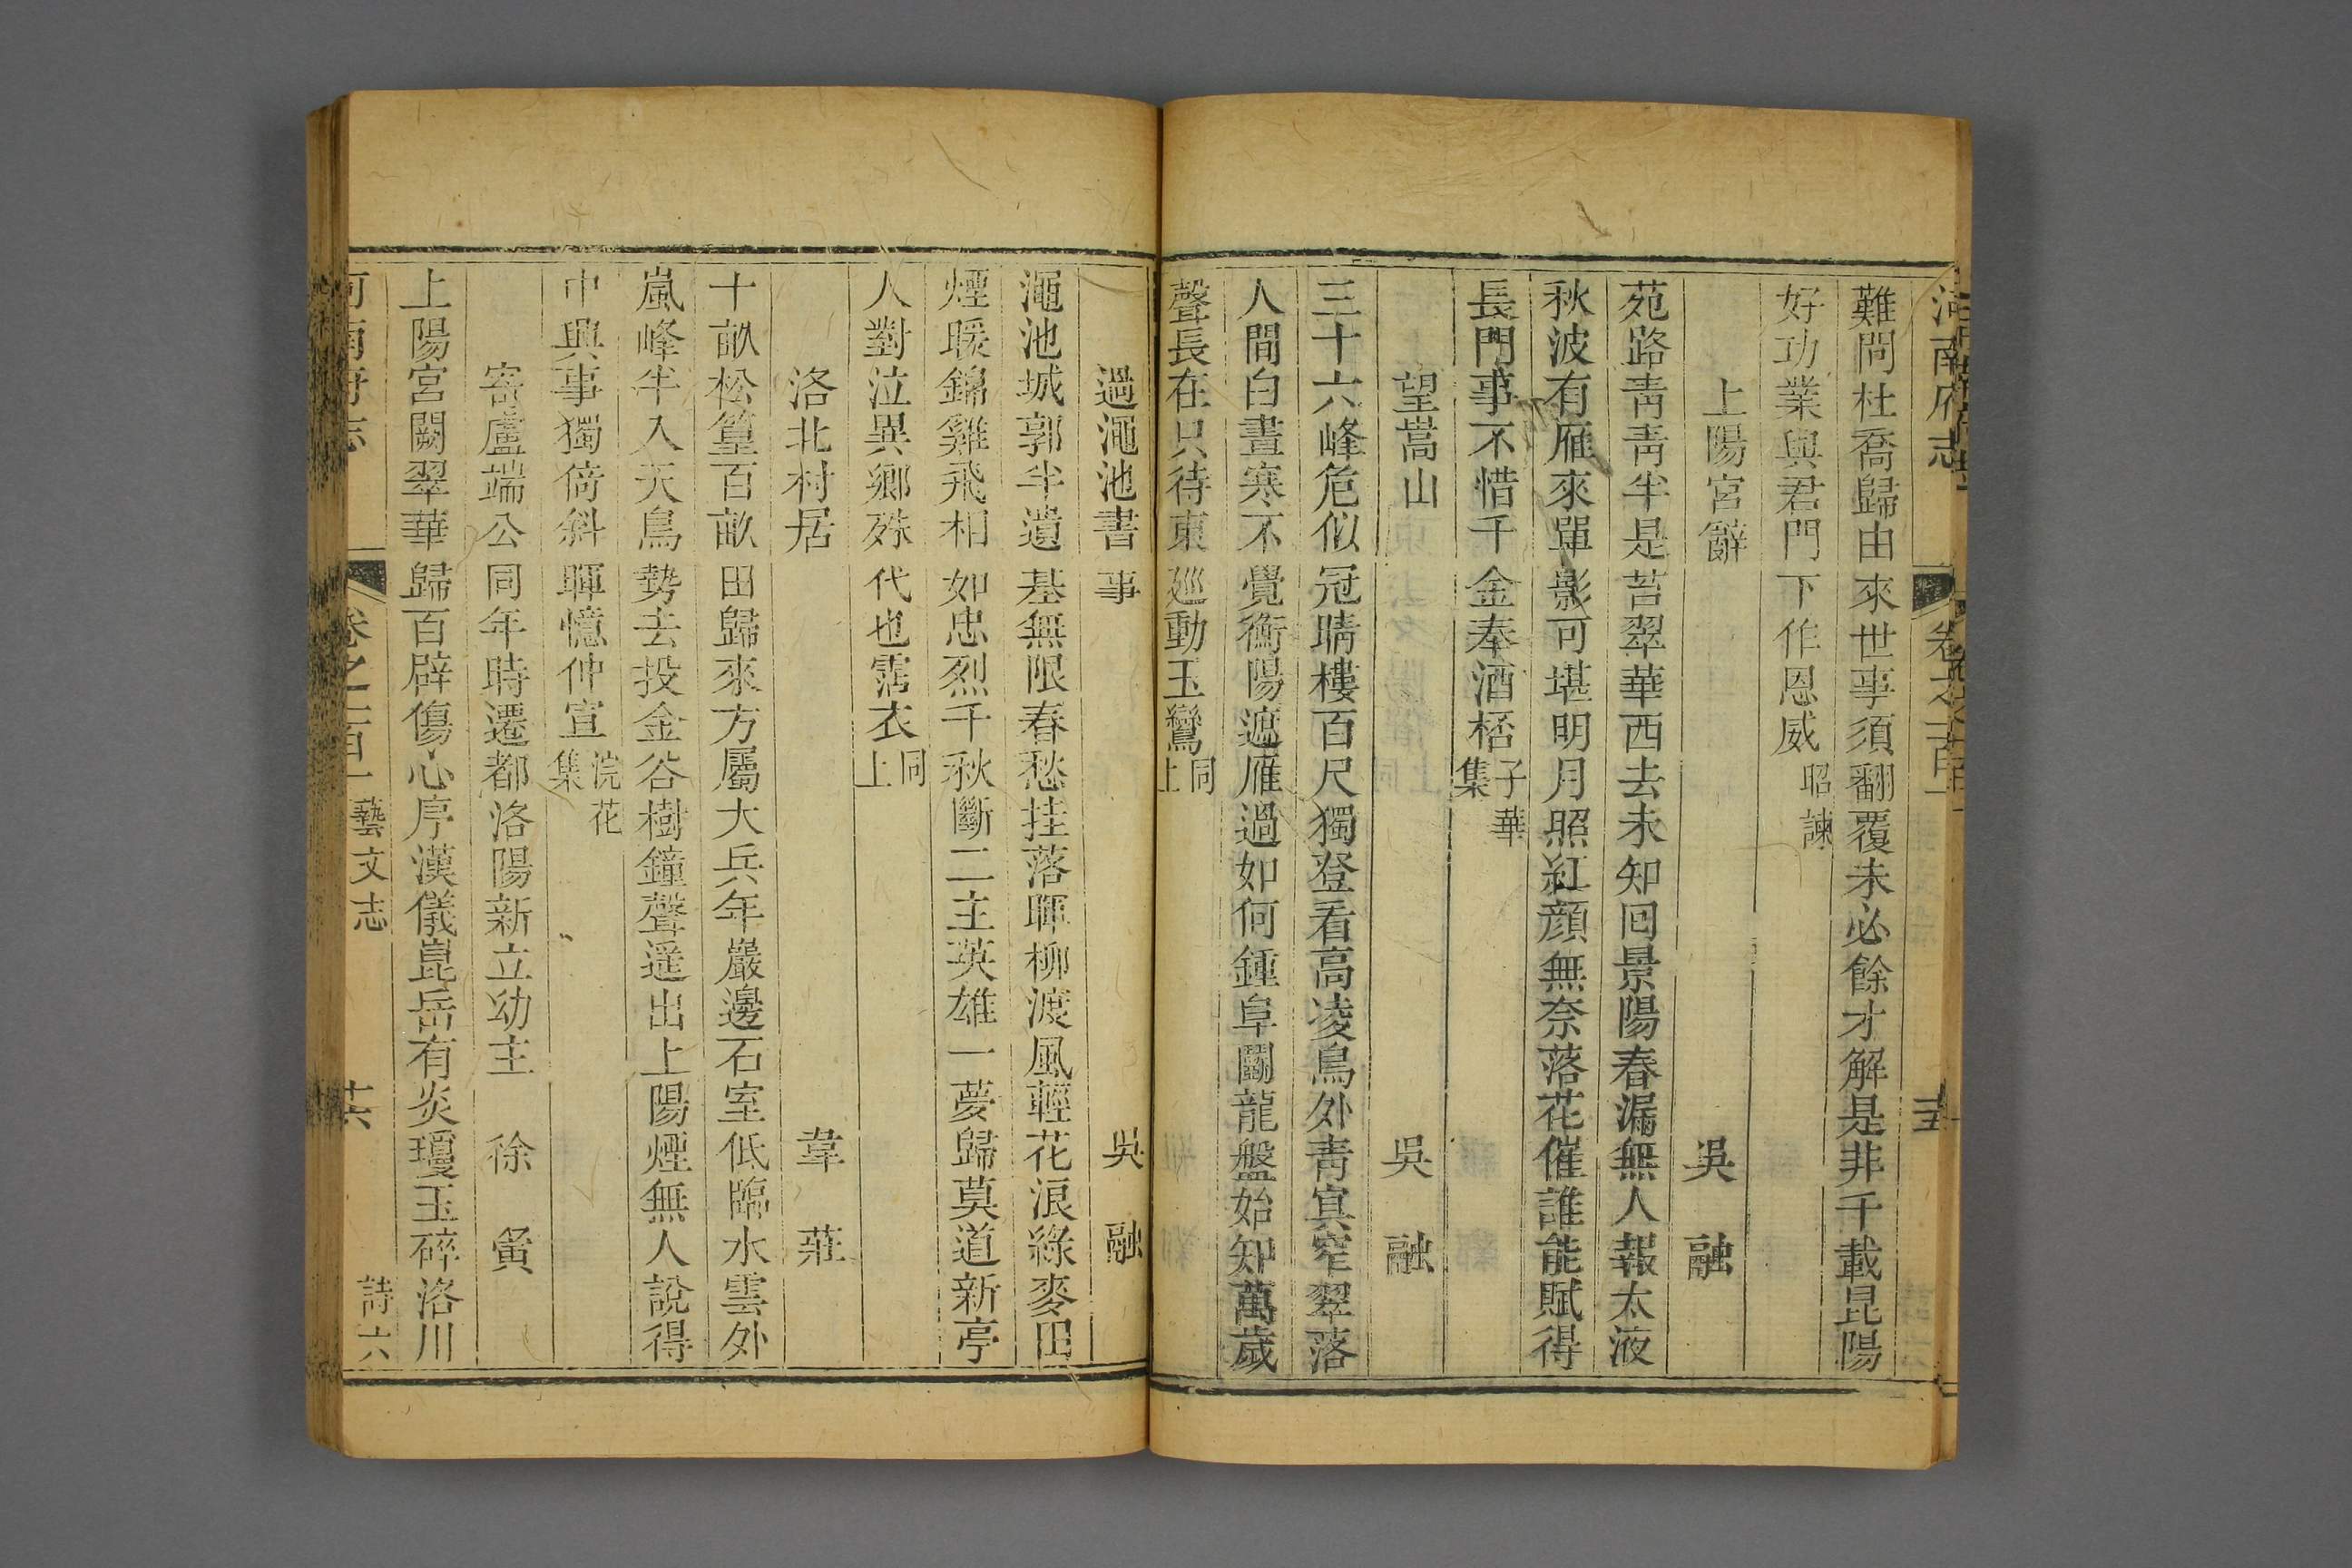 河南府志 卷之一百一
難問杜喬歸由來世事須翻覆未必餘才解是非千載昆陽
好功業與君門下作恩威 昭諫
上陽宮辭 吳融
苑路青青半是苔翠華西去未知囘景陽春漏無人報太液
秋波有雁來單影可堪明月照紅顔無奈落花催誰能賦得
長門事不惜千金奉酒桮 子華集
望嵩山 吳融
三十六峰危似冠晴樓百尺獨登看高凌鳥外青冥窄翠落
人間白晝寒不覺衡陽遮雁過如何鍾阜鬭龍盤始知萬歲
聲長在只待東廵動玉鸞 同上
過澠池書事 吳融
澠池城郭半遺基無限春愁挂落暉柳渡風輕花浪綠麥田
煙暖錦雞飛相如忠烈千秋斷二主英雄一夢歸莫道新亭
人對泣異鄉殊代也霑衣 同上
洛北村居 韋莊
十畝松篁百畝田歸來方屬大兵年巖邊石室低臨水雲外
嵐峰半入天鳥勢去投金谷樹鐘聲遥出上陽煙無人說得
中興事獨倚斜暉憶仲宣 浣花集
寄盧端公同年時遷都洛陽新立幼主 徐夤
上陽宮闕翠華歸百辟傷心序漢儀崑岳有炎瓊玉碎洛川
河南府志 卷之一百一 藝文志 詩六